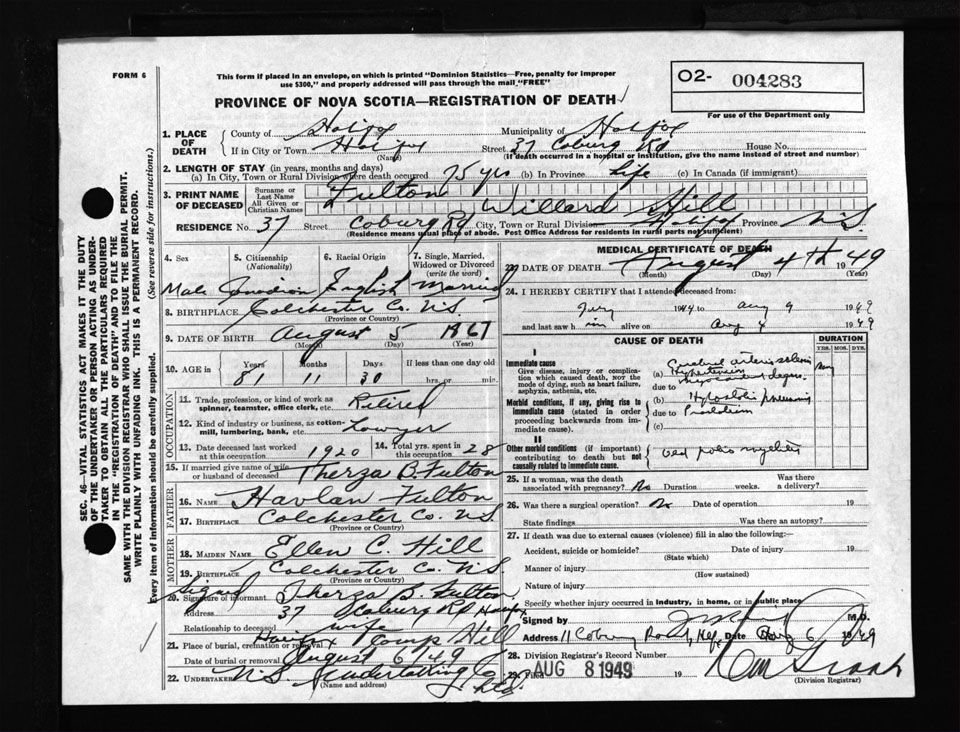 FORM 6
This form if placed in an envelope, on which is printed "Dominion Statistics—Free, penalty for improper
use $300," and properly addressed will pass through the mail "FREE"
02- 004283
For use of the Department only
PROVINCE OF NOVA SCOTIA—REGISTRATION OF DEATH
1. PLACE OF DEATH
County of Halifax Municipality of Halifax
If in City or Town Halifax Street 37 Coburg Rd House No.
(Name) (If death occurred in a hospital or institution, give the name instead of street and number)
2. LENGTH OF STAY (in years, months and days)
(a) In City, Town or Rural Division where death occurred 75 yrs (b) In Province Life (c) In Canada (if immigrant)
3. PRINT NAME OF DECEASED
Surname or Last Name Fulton
All Given or Christian Names Willard Hill
RESIDENCE No. 37 Street Coburg Rd City, Town or Rural Division Halifax Province N.S.
(Residence means usual place of abode. Post Office Address for residents in rural parts not sufficient)
4. Sex 5. Citizenship (Nationality) 6. Racial Origin 7. Single, Married, Widowed or Divorced (write the word)
Male Canadian English Married
8. BIRTHPLACE Colchester Co. N.S.
(Province or Country)
9. DATE OF BIRTH August 5 1867
(Month) (Day) (Year)
10. AGE in Years Months Days If less than one day old
81 11 30 hrs. or min.
OCCUPATION
11. Trade, profession, or kind of work as
spinner, teamster, office clerk, etc. Retired
12. Kind of industry or business, as cotton-
mill, lumbering, bank, etc. Lawyer
13. Date deceased last worked at this occupation 1920 14. Total yrs. spent in this occupation 28
15. If married give name of wife
or husband of deceased Therza B. Fulton
FATHER
16. NAME Havlan Fulton
17. BIRTHPLACE Colchester Co. N.S.
(Province or Country)
MOTHER
18. MAIDEN NAME Ellen C. Hill
19. BIRTHPLACE Colchester Co. N.S.
(Province or Country)
Signed
20. Signature of informant Therza B. Fulton
Address 37 Coburg Rd Halifax
Relationship to deceased wife
21. Place of burial, cremation or removal Halifax Camp Hill
Date of burial or removal August 6/49
22. UNDERTAKER N.S. Undertaking Co Ltd.
(Name and address)
MEDICAL CERTIFICATE OF DEATH
23. DATE OF DEATH August 4th 1949
(Month) (Day) (Year)
24. I HEREBY CERTIFY that I attended deceased from:
1944 to Aug 1949
and last saw him alive on Aug 4 1949
CAUSE OF DEATH
DURATION
YRS. MOS. DYS.
I
Immediate cause
Give disease, injury or complica-
tion which caused death, not the
mode of dying, such as heart failure,
asphyxia, asthenia, etc.
(a) Cerebral arterio sclerosis
Hypertension
due to
Morbid conditions, if any, giving rise to
immediate cause (stated in order
proceeding backwards from im-
mediate cause).
(b) Hypostatic pneumonia
due to
(c)
II
Other morbid conditions (if important)
contributing to death but not
causally related to immediate cause.
old polio myelitis
25. If a woman, was the death
associated with pregnancy? No Duration weeks. Was there
a delivery?
26. Was there a surgical operation? No Date of operation 19
State findings Was there an autopsy?
27. If death was due to external causes (violence) fill in also the following:—
Accident, suicide or homicide? Date of injury 19
(State which)
Manner of injury
(How sustained)
Nature of injury
Specify whether injury occurred in industry, in home, or in public place
Signed by M.D.
Address 11 Coburg Road, Hfx Date Aug 6 1949
28. Division Registrar's Record Number
29. Filed AUG 8 1949 19
(Division Registrar)
SEC. 46—VITAL STATISTICS ACT MAKES IT THE DUTY
OF THE UNDERTAKER OR PERSON ACTING AS UNDER-
TAKER TO OBTAIN ALL THE PARTICULARS REQUIRED
IN THE "REGISTRATION OF DEATH" AND TO FILE THE
SAME WITH THE DIVISION REGISTRAR WHO SHALL ISSUE THE BURIAL PERMIT.
WRITE PLAINLY WITH UNFADING INK. THIS IS A PERMANENT RECORD.
Every item of information should be carefully supplied. (See reverse side for instructions.)